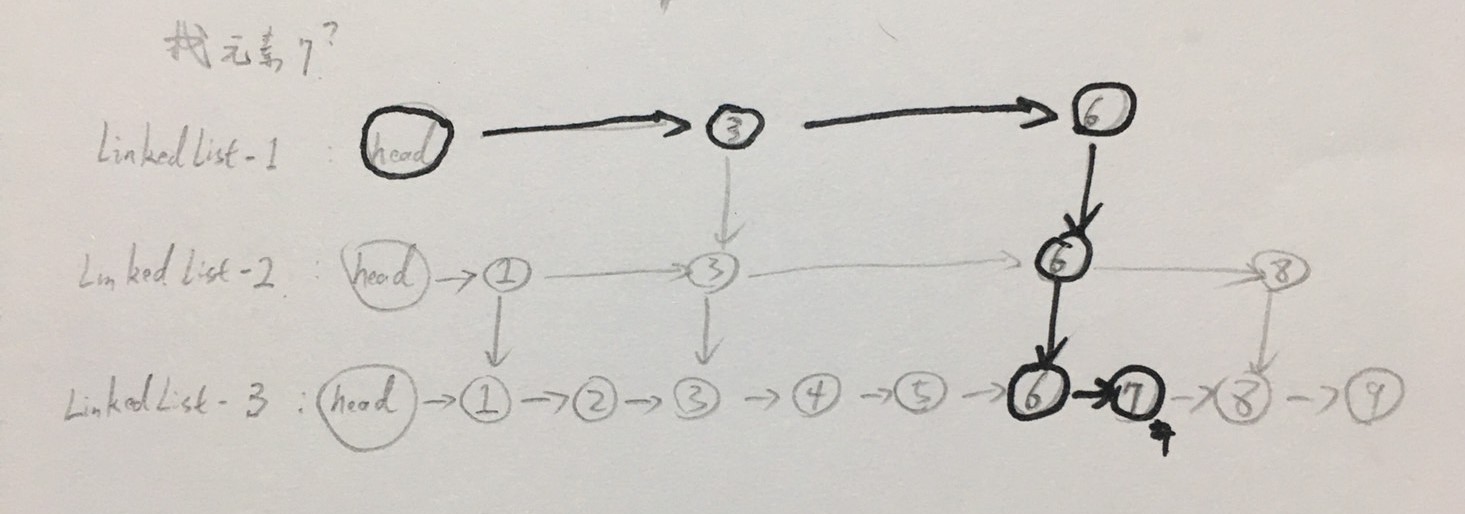 找元素7?
LinkedList-1 : head 3 6
Linked List-2 : head → 1 3 6 8
LinkedList-3 : head → 1 → 2 → 3 → 4 → 5 → 6 → 7 → 8 → 9